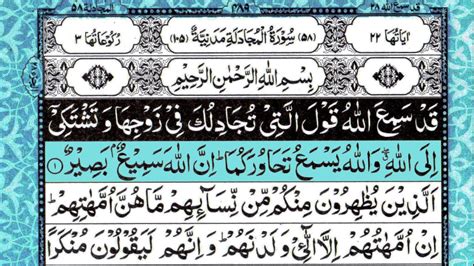 قد سمع الله ٢٨ ٤٨٩ المجادلة ٥٨
اٰیاتُهَا ٢٢ (٥٨) سُوْرَةُ الْمُجَادَلَةِ مَدَنِیَّةٌ (١٠٥) رُكُوْعَاتُهَا ٣
بِسْمِ اللهِ الرَّحْمٰنِ الرَّحِیْمِ
قَدْ سَمِعَ اللهُ قَوْلَ الَّتِیْ تُجَادِلُكَ فِیْ زَوْجِهَا وَ تَشْتَكِیْۤ
اِلَی اللهِ ۖۗ وَ اللهُ یَسْمَعُ تَحَاوُرَكُمَا ؕ اِنَّ اللهَ سَمِیْعٌۢ بَصِیْرٌ ﴿۱﴾
اَلَّذِیْنَ یُظٰهِرُوْنَ مِنْكُمْ مِّنْ نِّسَآىِٕهِمْ مَّا هُنَّ اُمَّهٰتِهِمْ ؕ
اِنْ اُمَّهٰتُهُمْ اِلَّا الّٰٓـِٔیْ وَلَدْنَهُمْ ؕ وَ اِنَّهُمْ لَیَقُوْلُوْنَ مُنْكَرًا